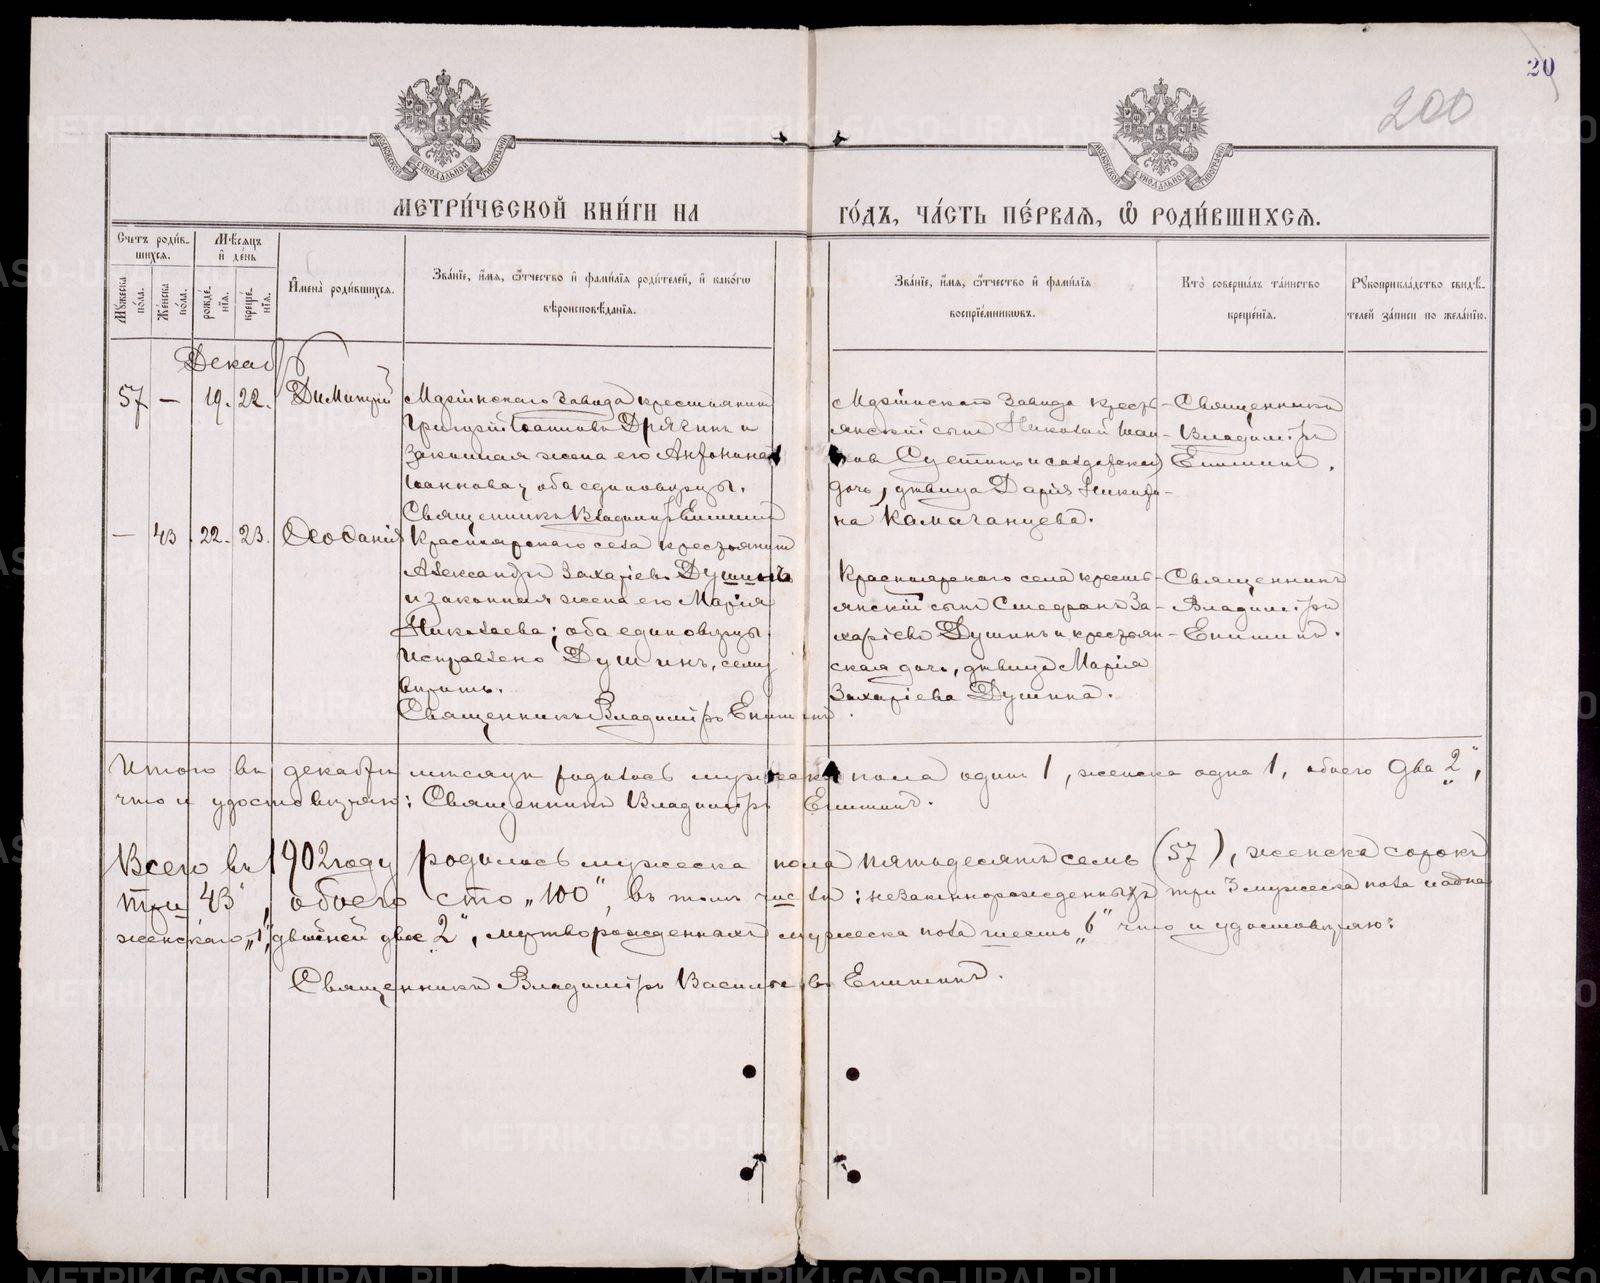 20
200
МЕТРИ́ЧЕСКОЙ КНИ́ГИ НА ГО́ДЪ, ЧА́СТЬ ПЕ́РВАѦ, Ѡ РОДИ́ВШИХСѦ.
Счетъ роди́вшихсѧ.
Мꙋжеска по́ла.
Же́нска по́ла.
Мѣ́сѧцъ и҆ де́нь
рожде́нїѧ.
креще́нїѧ.
И҆мена̀ роди́вшихсѧ.
Зва́нїе, и҆́мѧ, ѻ҆́тчество и҆ фами́лїѧ роди́телей, и҆ како́гѡ вѣроисповѣ́данїѧ.
Зва́нїе, и҆́мѧ, ѻ҆́тчество и҆ фами́лїѧ воспрїе́мникѡвъ.
Кто̀ соверша́лъ та́инство креще́нїѧ.
Рꙋкоприкла́дство свидѣ́телей за́писи по жела́нїю.
Декаб
57 — 19. 22. Димитрій
Крестьянинъ
Григорій Іоанновъ Дрягинъ и
законная жена его Антонина
Іоаннова, оба единоверцы.
Священникъ Владиміръ Епишинъ
Завода кресть-
янскій сынъ Николай Іоан-
новъ Сустинъ и солдатская
дочь, дѣвица Дарія Никити-
на Камаганцева.
Священникъ
Владиміръ
Епишинъ.
— 43 22. 23. Ѳеофанія
Красноярскаго села крестьянинъ
Александръ Захаріевъ Душинъ
и законная жена его Марія
Николаева; оба единоверцы.
Исправлено Душинъ, сему
верить.
Священникъ Владиміръ Епишинъ
Красноярскаго села кресть-
янскій сынъ Стефанъ За-
харіевъ Душинъ и крестьян-
ская дочь, дѣвица Марія
Захаріева Душина.
Священникъ
Владиміръ
Епишинъ.
Итого въ декабрѣ мѣсяцѣ родилось мужеска пола одинъ 1, женска одна 1, обоего два „2“,
что и удостоверяю: Священникъ Владиміръ Епишинъ.
Всего въ 1902 году родилось мужеска пола пятьдесятъ семь (57), женска сорокъ
три „43“, обоего сто „100“, въ томъ числѣ: незаконнорожденныхъ три 3 мужеска пола и одна
женскаго „1“, двойней двѣ „2“, мертворожденныхъ мужеска пола шесть „6“ что и удостоверяю:
Священникъ Владиміръ Васильевъ Епишинъ.
METRIKI.GASO-URAL.RU